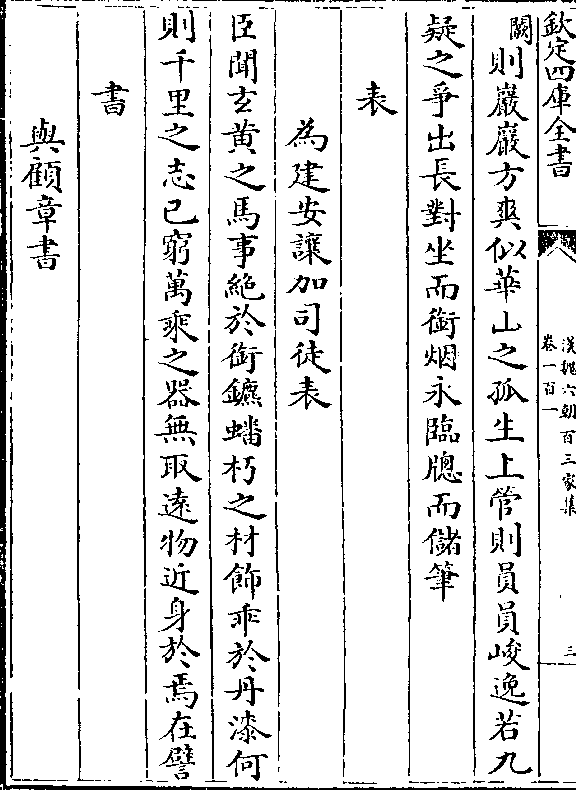 欽定四庫全書
漢魏六朝百三家集
卷一百一
三
闕則巖巖方爽似華山之孤生上管則員員峻逸若九
疑之爭出長對坐而銜烟永臨牎而儲筆
表
為建安讓加司徒表
臣聞玄黃之馬事絶於銜鑣蟠朽之材飾乖於丹漆何
則千里之志已窮萬乘之器無取遠物近身於焉在譬
書
與顧章書